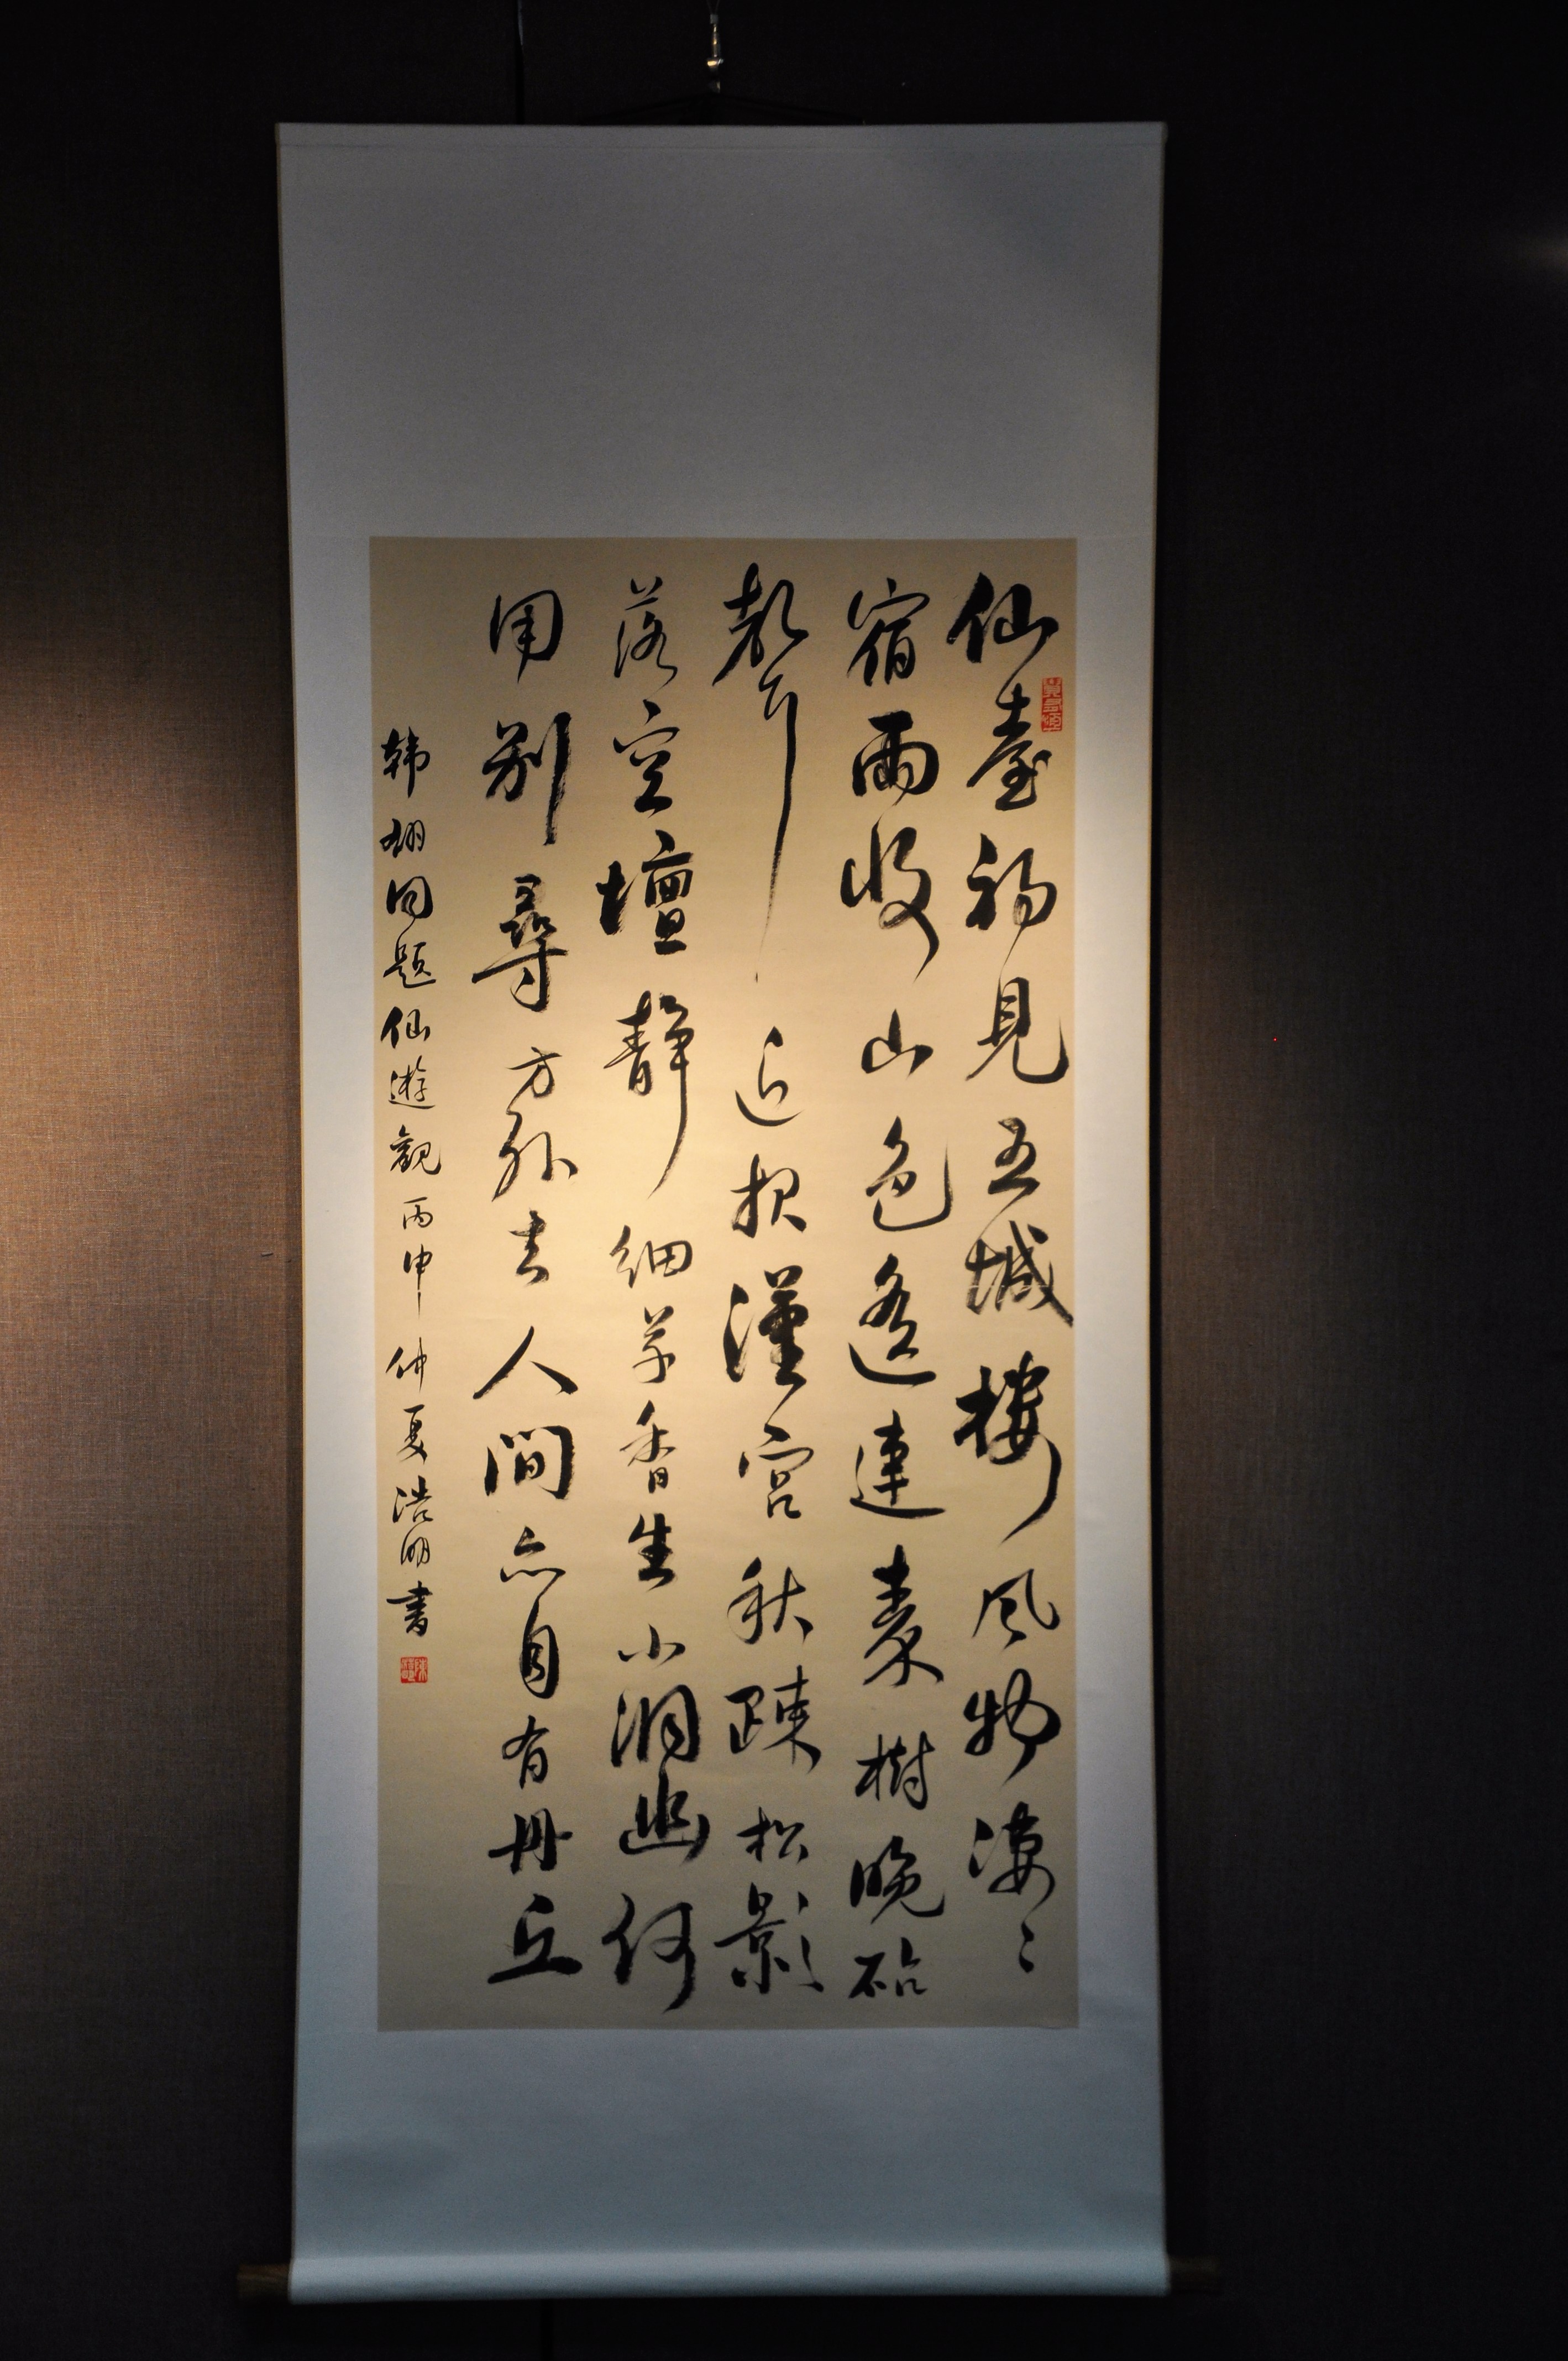 仙臺初見五城樓風物淒〻
宿雨收山色遙連秦樹晚砧
聲近報漢宮秋疎松影
落空壇靜細草香生小洞幽何
用別尋方外去人間亦自有丹丘
韩翃同题仙遊觀丙申仲夏浩明书